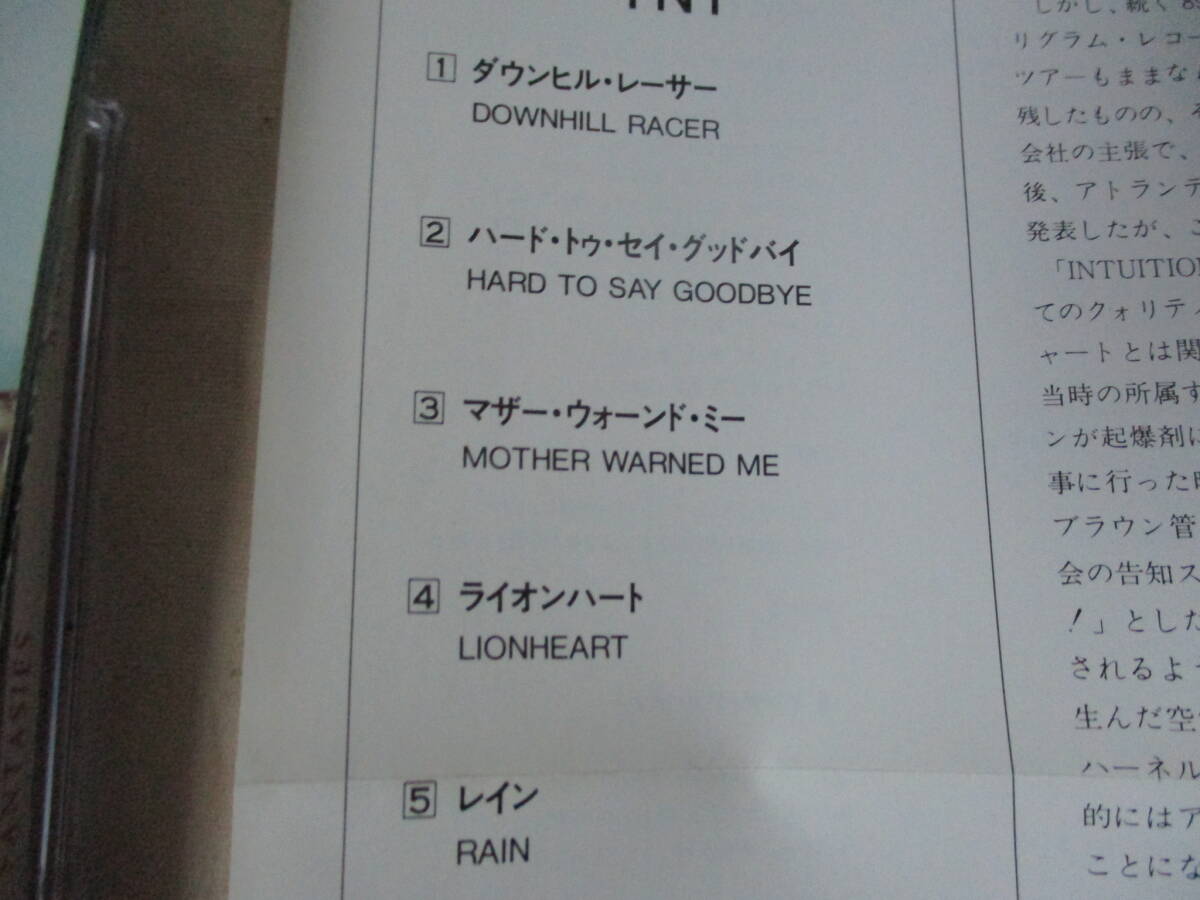 TNT
1 ダウンヒル・レーサー
DOWNHILL RACER
2 ハード・トゥ・セイ・グッドバイ
HARD TO SAY GOODBYE
3 マザー・ウォーンド・ミー
MOTHER WARNED ME
4 ライオンハート
LIONHEART
5 レイン
RAIN
しかし、続く
リグラム・レコー
ツアーもままな
残したものの、そ
会社の主張で、
後、アトランテ
発表したが、こ
「INTUITION
てのクォリティ
ャートとは関
当時の所属す
ンが起爆剤に
事に行った
ブラウン管
会の告知ス
！」とした
されるよ
生んだ空
ハーネル
的にはア
ことにな
ANTASIES